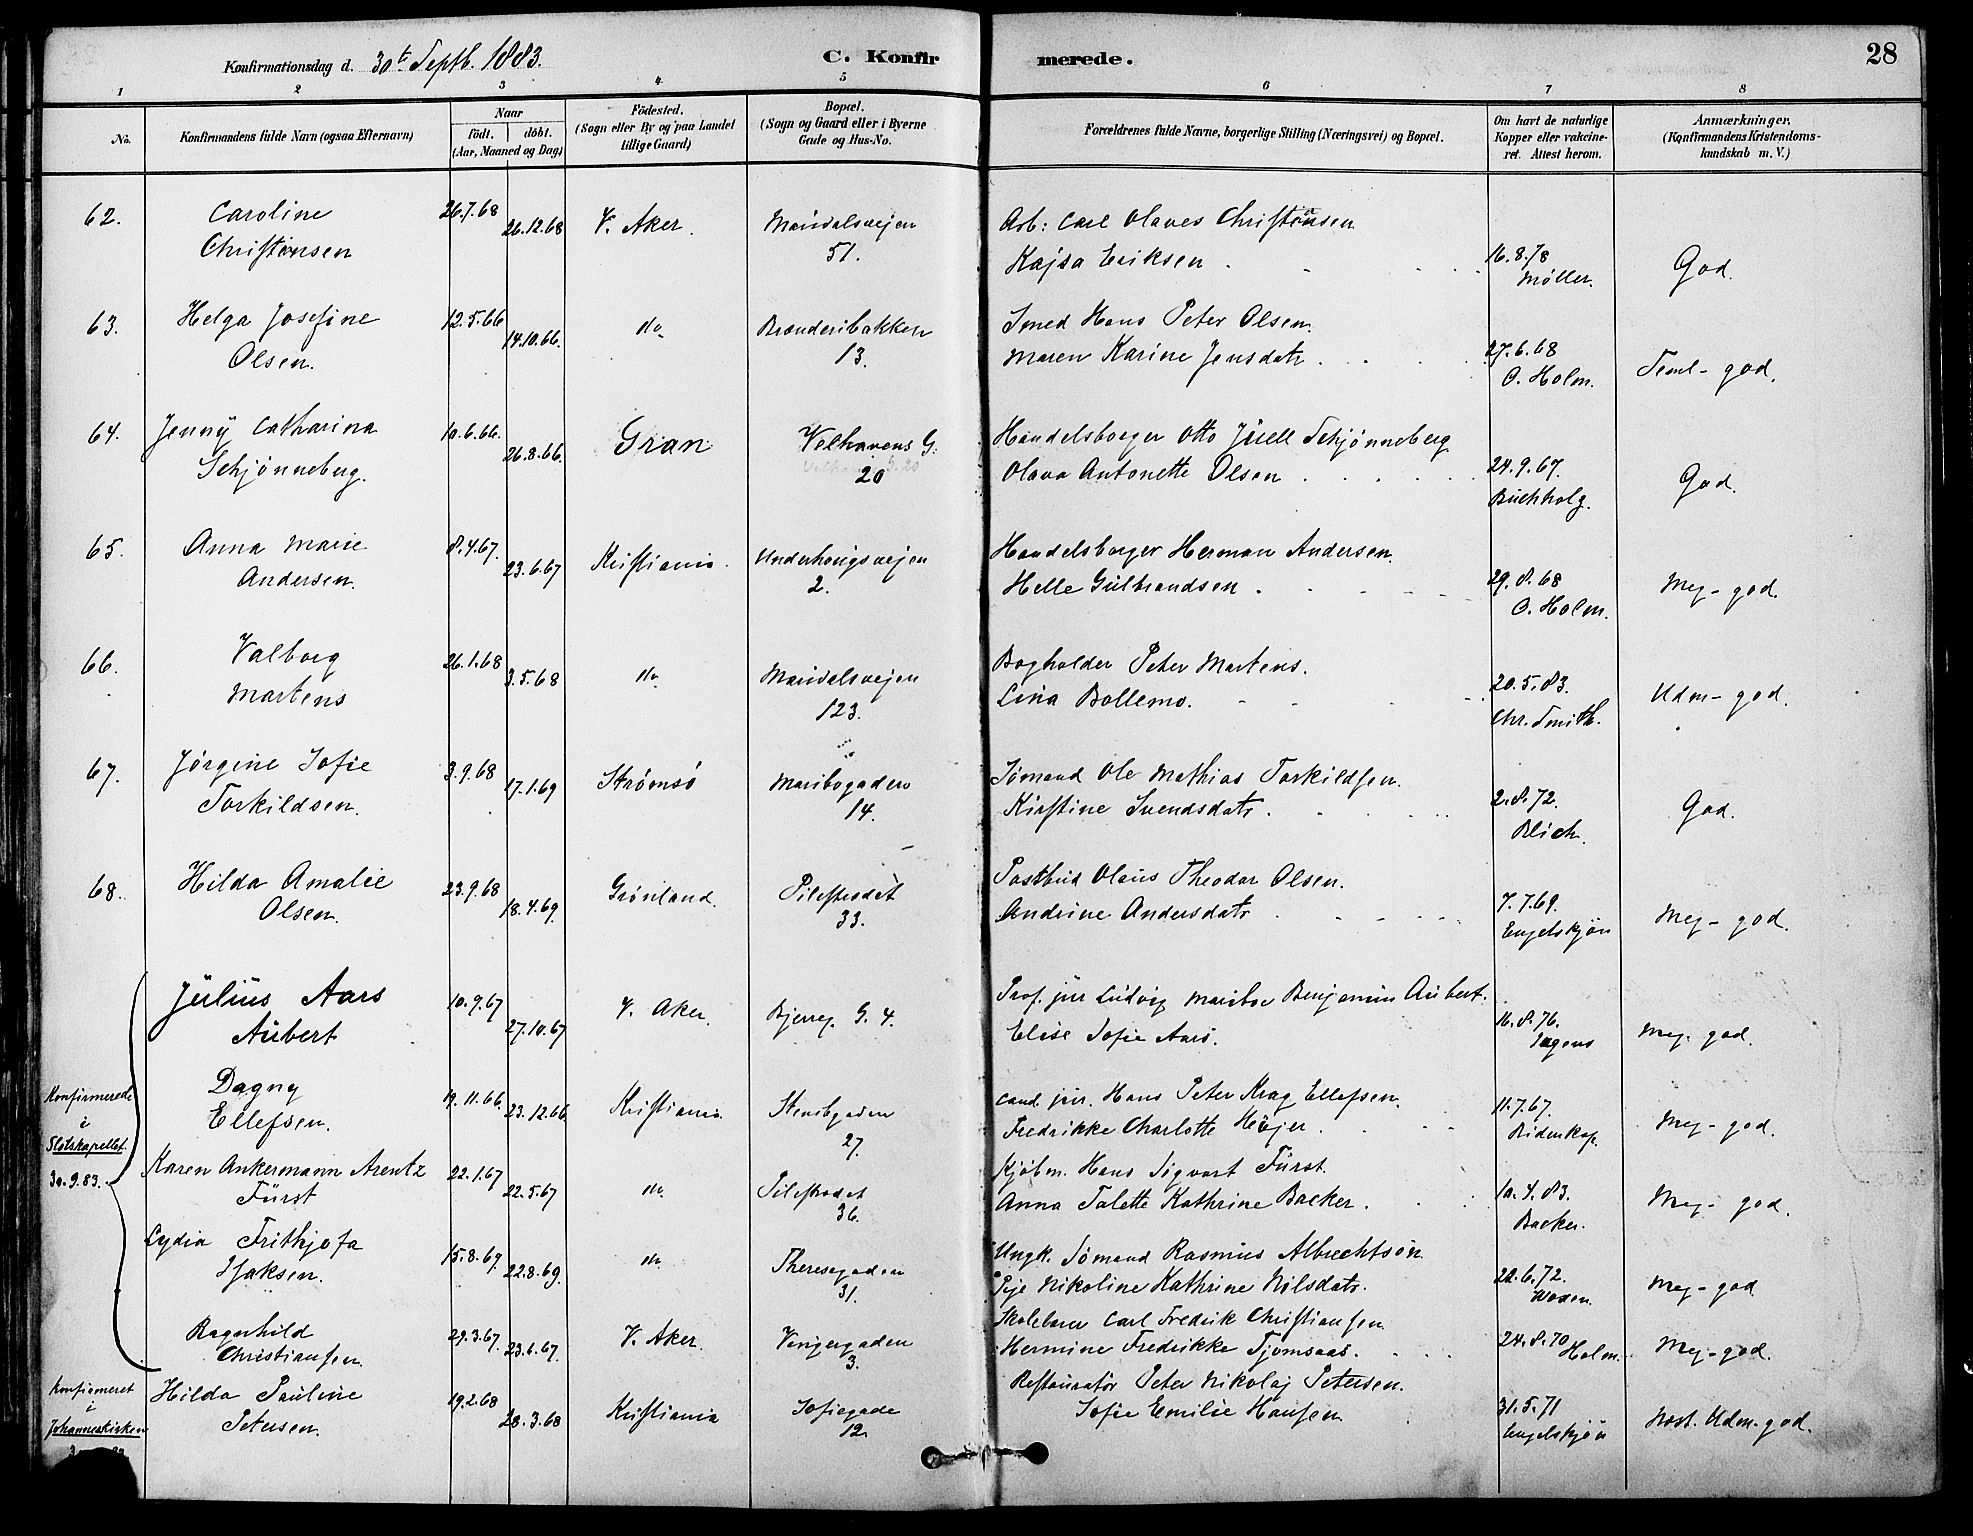 Konfirmationsdag d. 30te Septb. 1883.
C. Konfir
merede.
28
1 2 3 4 5 6 7 8
No.
Konfirmandens fulde Navn (ogsaa Efternavn)
Naar
födt. döbt.
(Aar, Maaned og Dag)
Födested.
(Sogn eller By og paa Landet
tillige Gaard)
Bopæl.
(Sogn og Gaard eller i Byerne
Gade og Hus-No.
Forældrenes fulde Navne, borgerlige Stilling (Næringsvei) og Bopæl.
Om havt de naturlige
Kopper eller vakcine-
ret. Attest herom.
Anmærkninger.
(Konfirmandens Kristendoms-
kundskab m. V.)
62. Caroline 26.7.68 26.12.68 V. Aker. Maridalsvejen Arb: Carl Olaves Christensen
Christensen 51. Kajsa Eriksen 16.8.78 Møller. God.
63. Helga Josefine 12.5.66 14.10.66. do Brænderibakken Smed Hans Peter Olsen.
Olsen. 13. Maren Karine Jensdatr. 27.6.68 O. Holm. Teml- god.
64. Jenny Catharina 10.6.66. 26.8.66. Gran Velhavens G. Handelsborger Otto Juell Schjønneberg
Schjønneberg. 20 Olava Antonette Olsen 24.9.67. Buchholz. God.
65. Anna Marie 8.4.67. 23.6.67 Kristiania. Underhaugsvejen Handelsborger Herman Andersen.
Andersen. 2. Helle Gulbrandsen 29.8.68 O. Holm. Meg- god.
66. Valborg 26.1.68 3.5.68 do Maridalsvejen Bogholder Peter Martens.
Martens 123. Lina Bollemo. 20.5.83. Chr. Smith. Udm- god.
67. Jørgine Sofie 3.9.68 17.1.69 Strømsö Maribogaden Sømand Ole Mathias Torkildsen.
Torkildsen. 14. Kirstine Svendsdatr. 2.8.72. Blich. God.
68. Hilda Amalie 23.9.68 18.4.69. Grönland. Pilestrædet Postbud Olaus Theodor Olsen.
Olsen. 33. Andrine Andersdatr 7.7.69. Engelskjön Meg- god.
Julius Aars 10.9.67 27.10.67 V. Aker. Bjerreg. G. 4. Prof. jur Ludvig Mariboe Benjamin Aubert.
Aubert Elise Sofie Aars. 16.8.76. Meg. god.
Konfirmerede
i
Slotskapellet
30.9.83.
Dagny 19.11.66. 23.12.66 Kristiania. Stensbgaden cand. jur. Hans Peter Krag Ellefsen.
Ellefsen. 27. Fredrikke Charlotte Höyer 11.7.67. Meg- god.
Karen Ankermann Arentz 22.1.67 22.5.67 do Pilestrædet Kjöbm. Hans Sigvart Fürst.
Fürst 36. Anna Talette Kathrine Backer. 10.4.83. Backer. Meg- god.
Lydia Frithjofa 15.8.67. 22.8.69. do Theresegaden Ungk. Sømand Rasmus Albrechtsøn
Isaksen. 31. Pige Nikoline Kathrine Nilsdatr. 22.6.72. Meg- god
Ragnhild 29.3.67 23.6.67. V. Aker. Vingergaden Skolelærer Carl Fredrik Christiansen
Christiansen. 3. Hermine Fredrikke Tjomsaas. 24.8.70 Holm. Meg- god.
Konfirmeret
i
Johanneskirken
Hilda Pauline 19.2.68 28.3.68 Kristiania Sofiegade Restauratør Peter Nikolaj Petersen.
Petersen. 12. Sofie Emilie Hansen. 31.5.71 Engelskjön Næst. Udm- god.